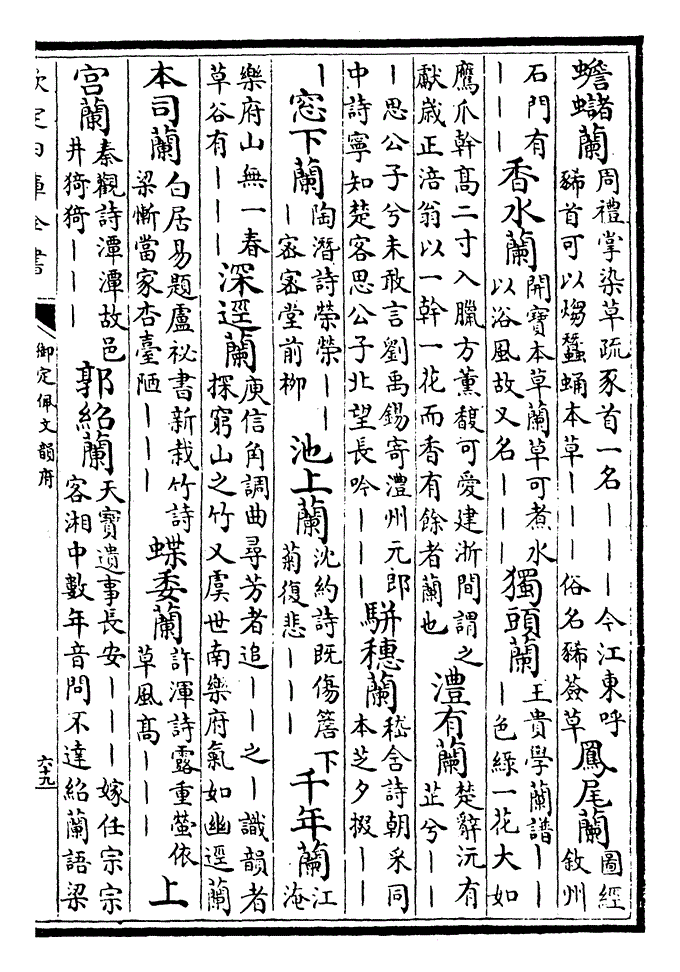 蟾蠩蘭周禮掌染草疏豕首一名｜｜｜今江東呼豨首可以煼蠶蛹本草｜｜｜俗名豨薟草鳳尾蘭圖經敘州
石門有｜｜｜香水蘭開寳本草蘭草可煮水以浴風故又名｜｜｜獨頭蘭王貴學蘭譜｜｜｜色綠一花大如
鷹爪幹髙二寸入臘方薰馥可愛建浙間謂之獻歲正涪翁以一幹一花而香有餘者蘭也澧有蘭楚辭沅有芷兮｜｜
｜思公子兮未敢言劉禹錫寄澧州元郎中詩寧知楚客思公子北望長吟｜｜｜駢穗蘭嵇含詩朝采同本芝夕掇｜｜
｜窓下蘭陶潛詩榮榮｜｜｜宻宻堂前柳池上蘭沈約詩既傷簷下菊復悲｜｜｜千年蘭江淹
樂府山無一春草谷有｜｜｜深逕蘭庾信角調曲尋芳者追｜｜之｜識韻者探窮山之竹又虞世南樂府氣如幽逕蘭
本司蘭白居易題盧祕書新栽竹詩梁慚當家杏臺陋｜｜｜蝶委蘭許渾詩露重螢依草風髙｜｜｜上
宫蘭秦觀詩潭潭故邑井猗猗｜｜｜郭紹蘭天寳遺事長安｜｜｜嫁任宗宗客湘中數年音問不達紹蘭語梁
欽定四庫全書
御定佩文韻府
六十九